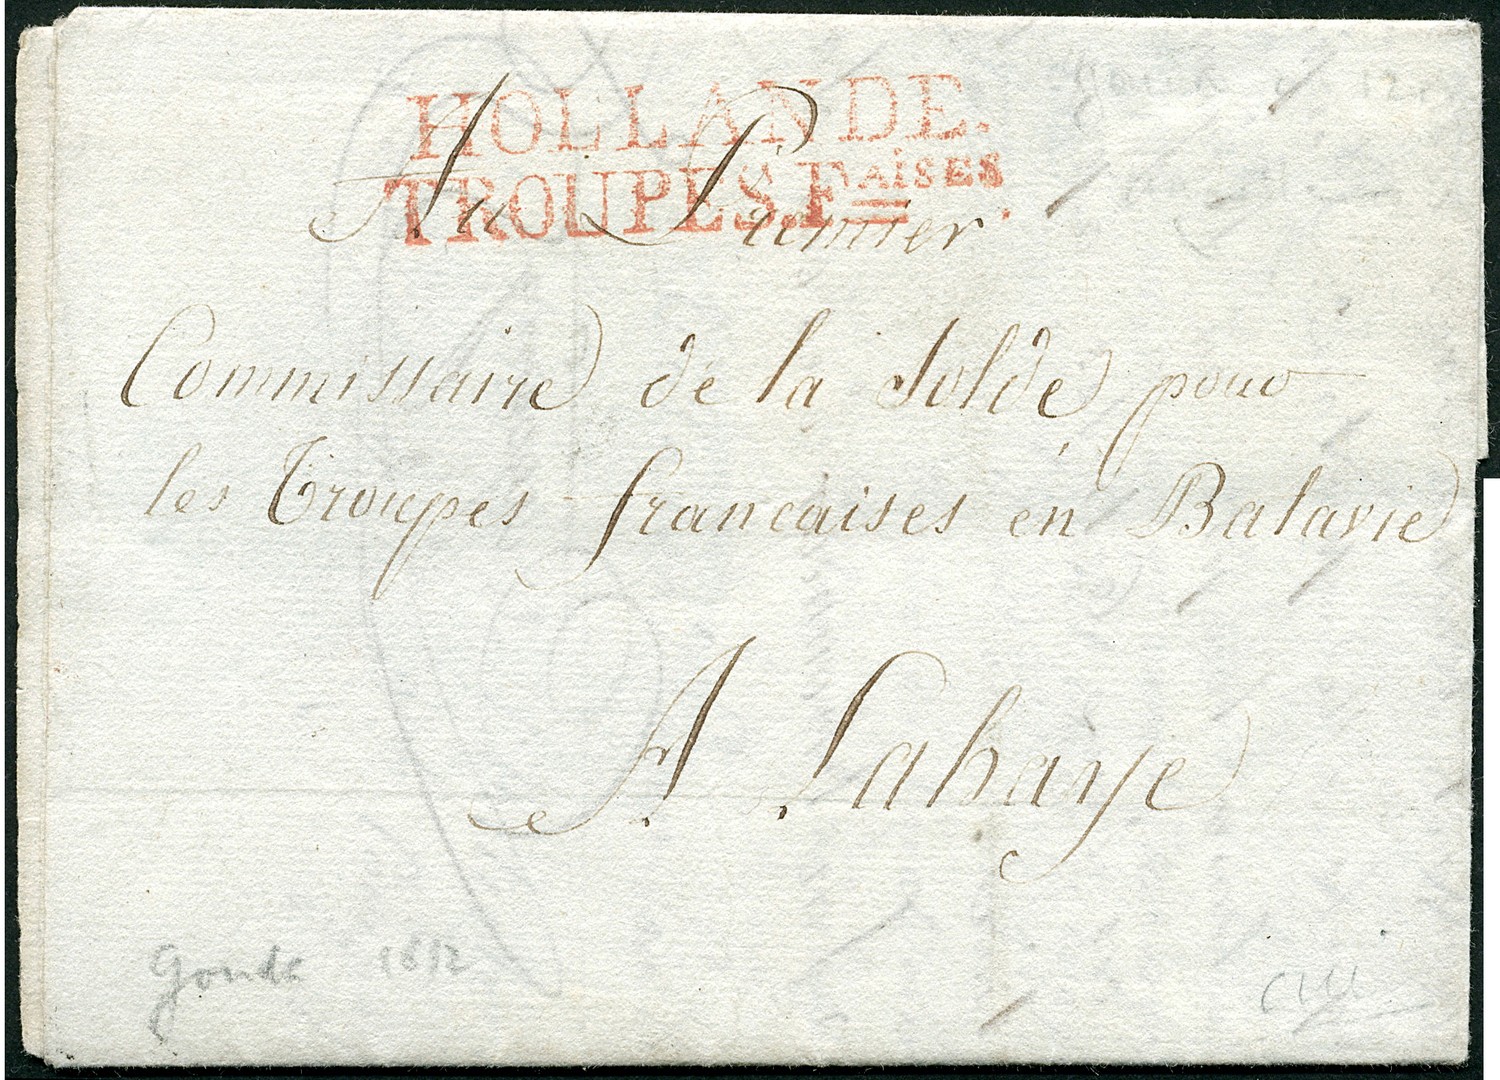 HOLLANDE.
TROUPES.Fraises.
Au Premier
Commissaire de la Solde pour
les Troupes francaises en Batavie
A Lahaye
Gouda